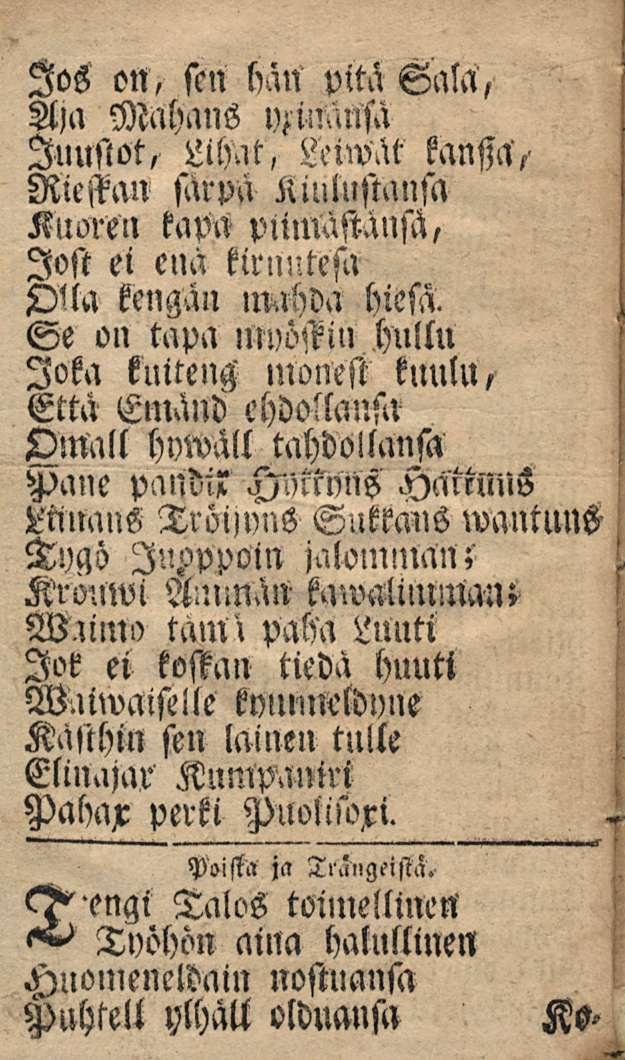 Jos on, sen hän pitä Sala,
Aja Mahans yxinänsä
Juustot, Lihat, Leiwät kansza,
Rieskan särpä Kiulustansa
Kuoren kapa piimästänsä,
Jost ei enä kirnutesa
Olla kengän mahda hiesä.
Se on tapa myöskin hullu
Joka kuiteng monest kuulu,
Että Emänd ehdollansa
Omall hywäll tahdollansa
Pane pandix Hyttyns Hattuns
Liinans Tröijyns Sukkans wantuns
Tygö Jupppoin jalomman;
Krouwi Ämmän kawalimman;
Waimo tämä paha Luuti
Jok ei koskan tiedä huuti
Waiwaiselle kymmeldyne
Kästhin sen lainen tulle
Elinajax Kumpanixi
Pahax perki Puolisoxi.
Poiska ja Trängeistä.
Tengi Talos toimellinen
Työhön aina halullinen
Huomeneldain nostuansa
Puhtell ylhäll olduansa
Ko-